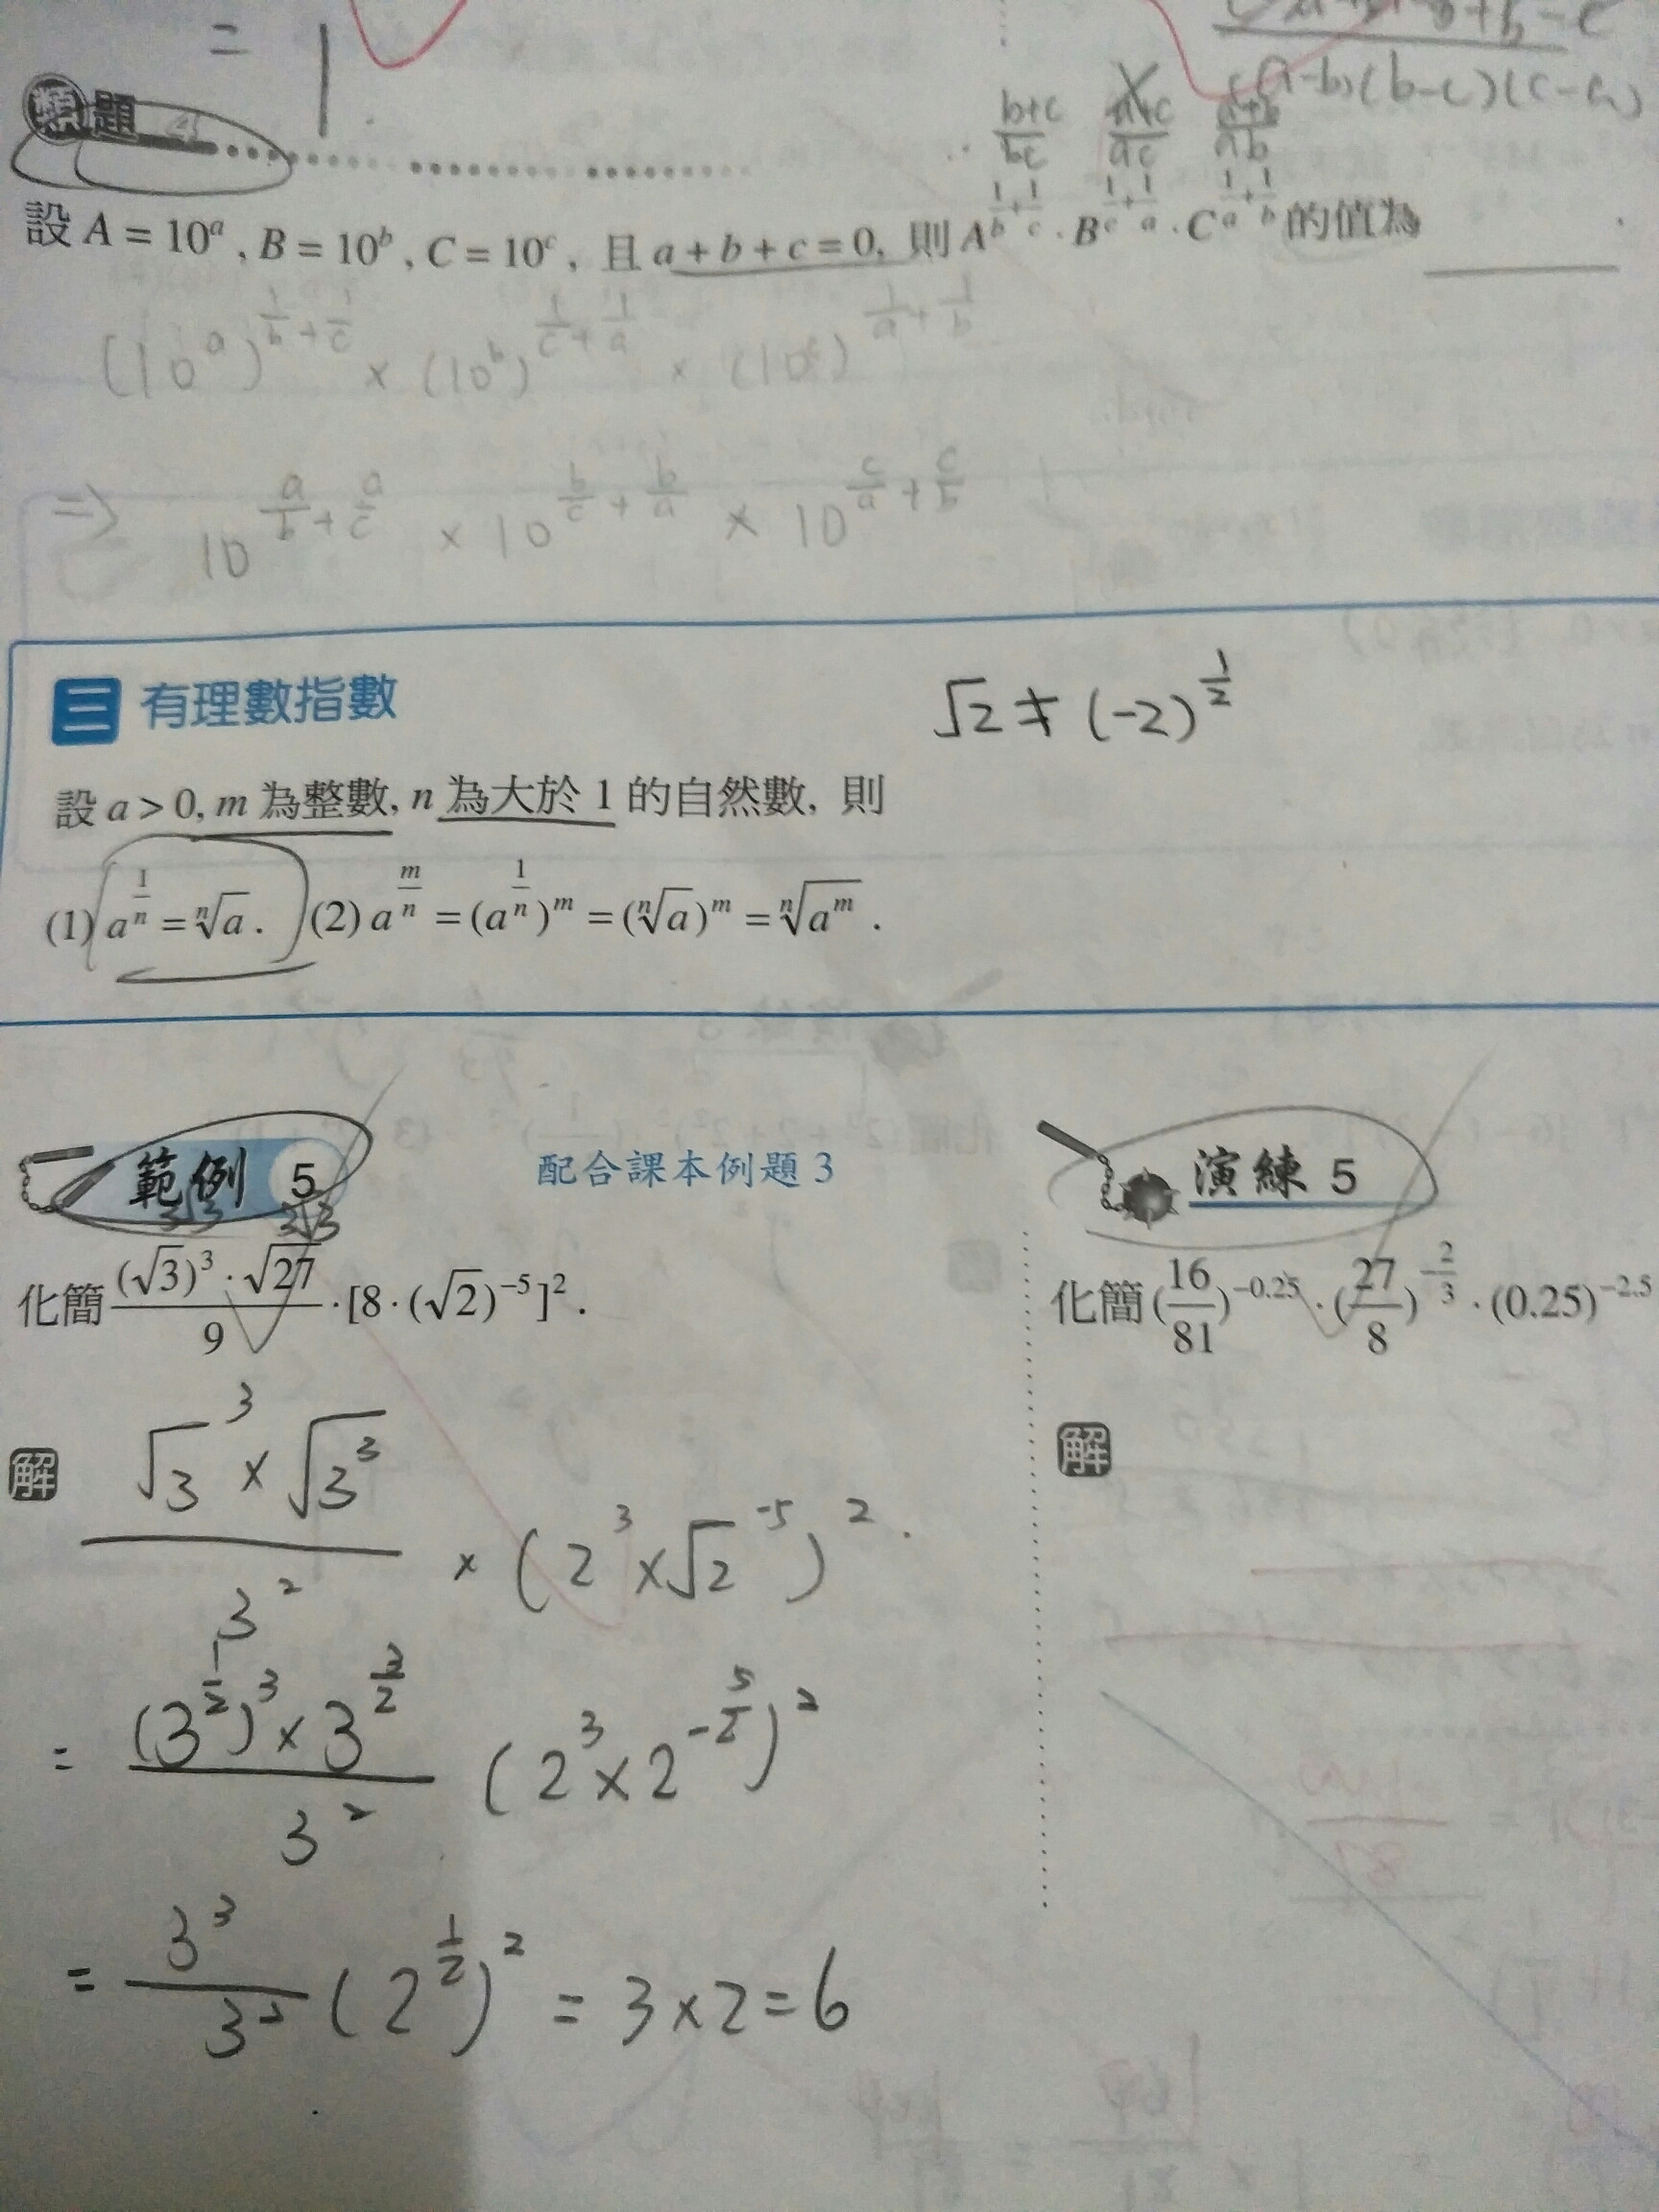 = 1
(a-b)(b-c)(c-a)
類題 4
b+c/bc a+c/ac a+b/ab
設 A = 10^a , B = 10^b , C = 10^c , 且 a + b + c = 0, 則 A^(1/b+1/c) · B^(1/c+1/a) · C^(1/a+1/b) 的值為 ______ .
(10^a)^(1/b+1/c) × (10^b)^(1/c+1/a) × (10^c)^(1/a+1/b)
=> 10^(a/b+a/c) × 10^(b/c+b/a) × 10^(c/a+c/b)
三 有理數指數
√2 ≠ (-2)^(1/2)
設 a > 0, m 為整數, n 為大於 1 的自然數, 則
(1) a^(1/n) = ⁿ√a . (2) a^(m/n) = (a^(1/n))^m = (ⁿ√a)^m = ⁿ√(a^m) .
範例 5 配合課本例題 3
3√3 3√3
化簡 ((√3)^3 · √27)/9 · [8 · (√2)^-5]^2 .
解 (√3^3 × √(3^3))/3^2 × (2^3 × √2^-5)^2 .
= ((3^(1/2))^3 × 3^(3/2))/3^2 (2^3 × 2^(-5/2))^2
= 3^3/3^2 (2^(1/2))^2 = 3 × 2 = 6
演練 5
化簡 (16/81)^-0.25 · (27/8)^(-2/3) · (0.25)^-2.5
解